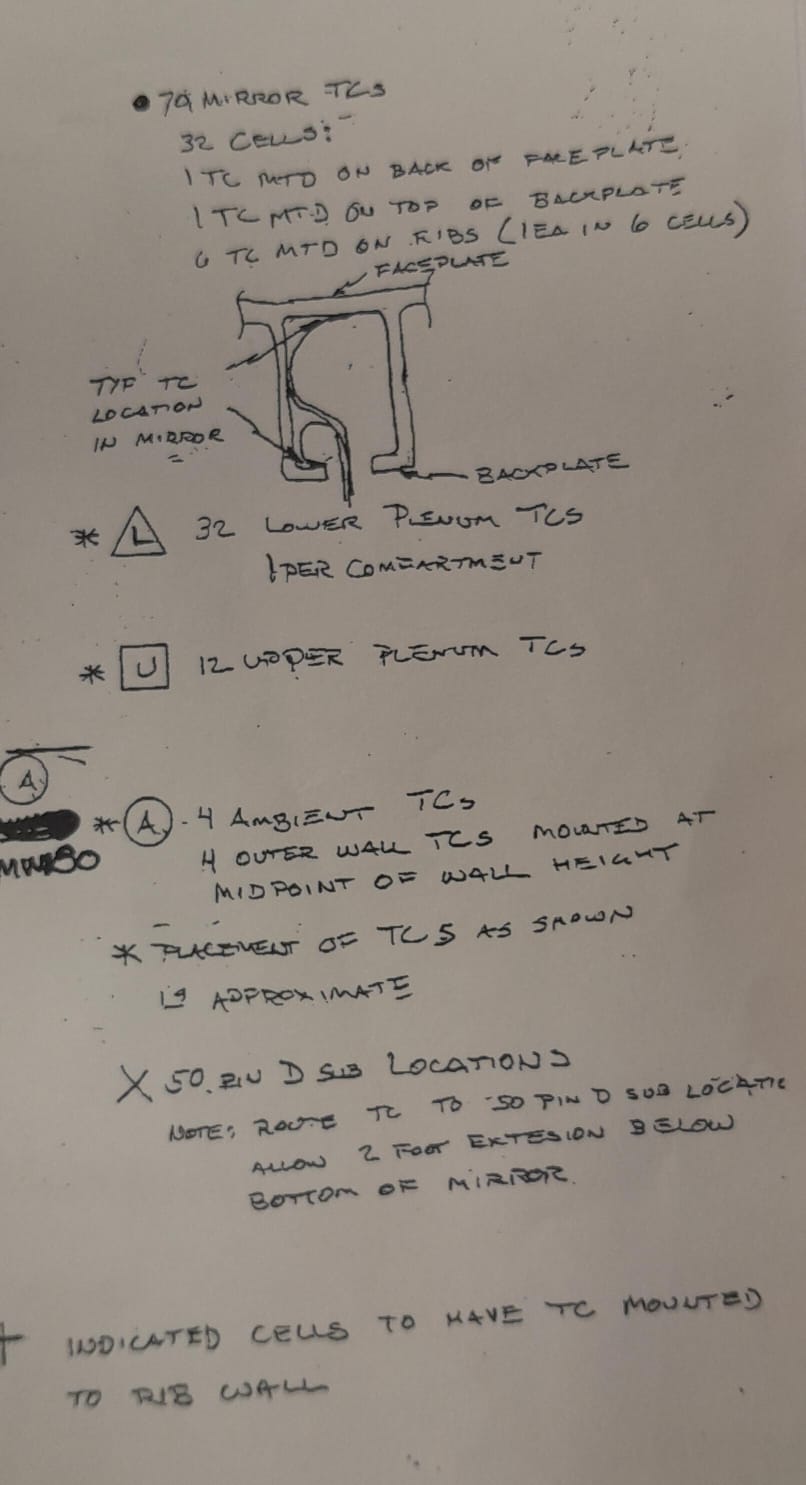 • 70 MIRROR TCS
32 CELLS:
1 TC MTD ON BACK OF FACEPLATE
1 TC MTD ON TOP OF BACKPLATE
6 TC MTD ON RIBS (1EA IN 6 CELLS)
FACEPLATE
TYP TC
LOCATION
IN MIRROR
BACKPLATE
* L 32 LOWER PLENUM TCS
1 PER COMPARTMENT
* U 12 UPPER PLENUM TCS
A
* A - 4 AMBIENT TCS
4 OUTER WALL TCS MOUNTED AT
MIDPOINT OF WALL HEIGHT
* PLACEMENT OF TCS AS SHOWN
IS APPROXIMATE
X 50 PIN D SUB LOCATIONS
NOTE: ROUTE TC TO 50 PIN D SUB LOCATIO
ALLOW 2 FOOT EXTESION BELOW
BOTTOM OF MIRROR.
+ INDICATED CELLS TO HAVE TC MOUNTED
TO RIB WALL